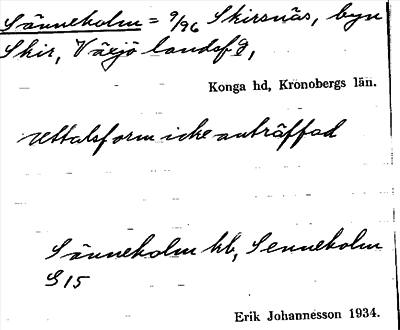 Sänneholm = 9/96 Skirsnäs, byn
Skir, Växjö landsf g,
Konga hd, Kronobergs län.
Uttalsform icke anträffad
Sänneholm hb, Senneholm
G 15
Erik Johannesson 1934.